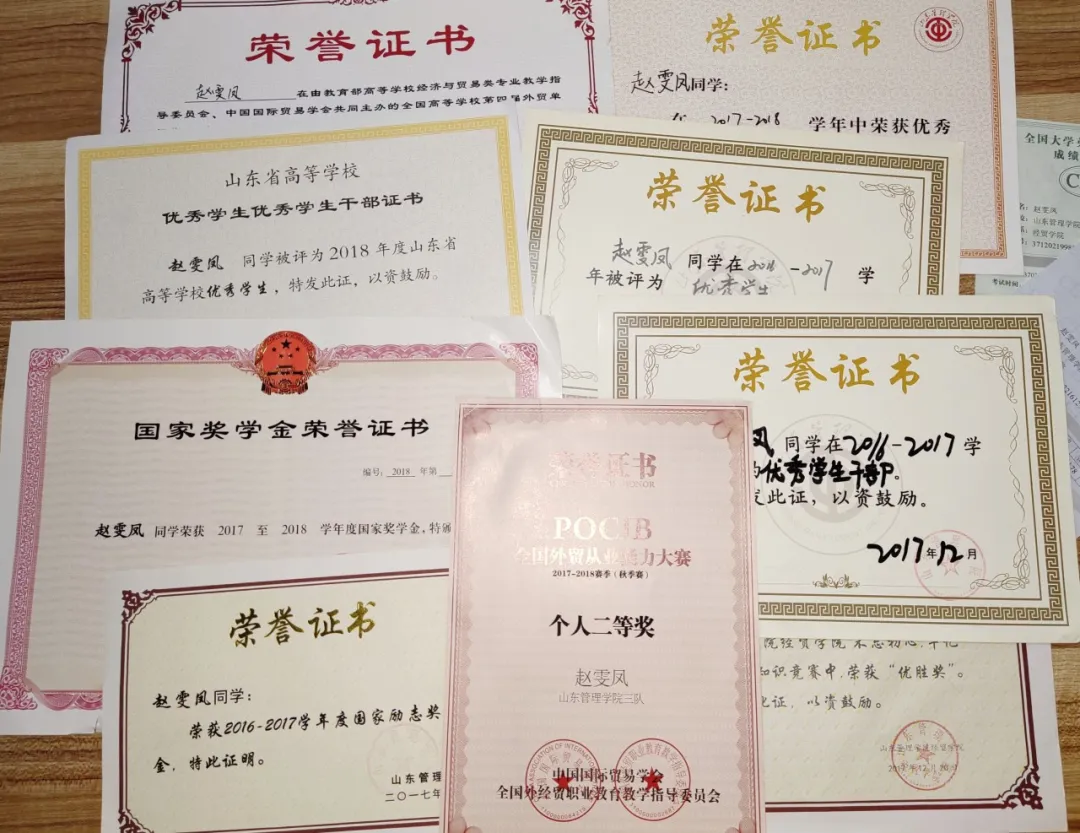 荣誉证书
赵雯凤 在由教育部高等学校经济与贸易类专业教学指
导委员会、中国国际贸易学会共同主办的全国高等学校第四届外贸单
荣誉证书
赵雯凤同学:
在 2017-2018 学年中荣获优秀
全国大学
成绩
赵雯凤
山东管理学院
经贸学院
考试时间:
山东省高等学校
优秀学生优秀学生干部证书
赵雯凤 同学被评为 2018 年度山东省
高等学校优秀学生，特发此证，以资鼓励。
荣誉证书
赵雯凤 同学在2016-2017 学
年被评为 优秀学生
国家奖学金荣誉证书
编号: 2018 年第
赵雯凤 同学荣获 2017 至 2018 学年度国家奖学金，特颁
荣誉证书
凤 同学在2016-2017学
优秀学生干部。
此证，以资鼓励。
2017年12月
荣誉证书
赵雯凤同学:
荣获2016-2017学年度国家励志奖
金，特此证明。
山东管理
二〇一七年
荣誉证书
POCIB
全国外贸从业能力大赛
2017-2018赛季（秋季赛）
个人二等奖
赵雯凤
山东管理学院三队
中国国际贸易学会
全国外经贸职业教育教学指导委员会
院经贸学院
知识竞赛中，荣获“优胜奖”。
此证，以资鼓励。